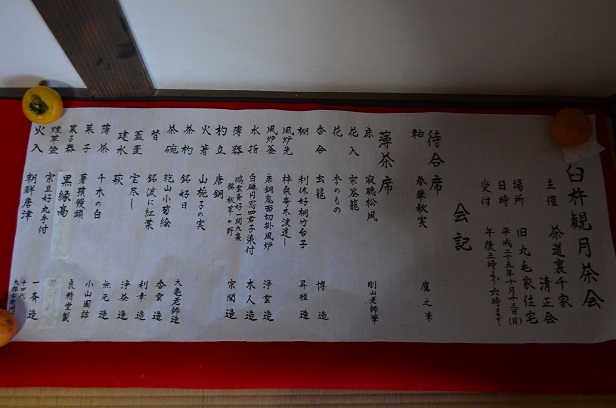 臼杵観月茶会
主催 茶道裏千家 清正会
場所 旧丸毛家住宅
日時 平成二十五年十月十三日(日)
受付 午後三時より六時まで
会記
待合席
軸 春華秋実
薄茶席
床 寂聴松風 剛山老師筆
花入 宗全籠
花 季のもの
香合 玄龍 博 造
棚 利休好桐竹台子 昇雅 造
風炉先
風炉釜 唐銅鬼面切掛風炉 浄雲 造
水指 木人 造
薄器 宗閑 造
杓立 唐銅
火箸 山梔子の実
茶杓 銘 好日 大亀老師造
茶碗 乾山小菊絵 香雲 造
替 銘 波に紅葉 利幸 造
蓋置 宝尽し 浄茶 造
建水 萩 無元 造
薄茶 千木の白 小山園詰
菓子 薯蕷饅頭
菓子器 黒縁高
煙草盆 宗旦好丸手付 一斎 造
火入 朝鮮唐津 十四代